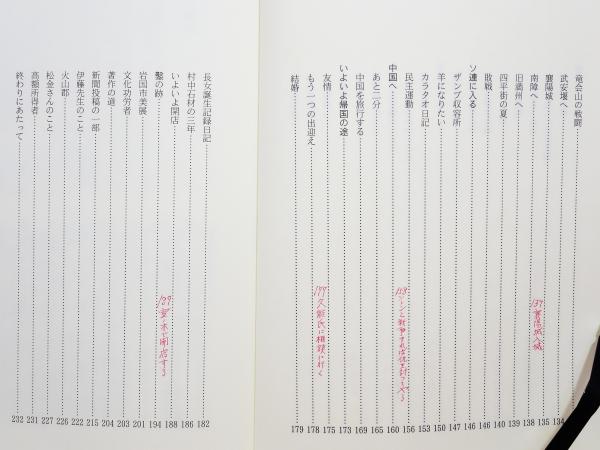 竜会山の戦闘
武安堰へ 134
襄陽城 135
137 襄陽城入城
南障へ 138
旧満州へ 139
四平街の夏 140
敗戦 146
ソ連に入る 146
ザンブ収容所 147
羊になりたい 150
カラタオ日記 153
民主運動 156
中国へ 160
あと二分 165
中国を旅行する 169
いよいよ帰国の途 173
友情 175
もう一つの出迎え 178
結婚 179
長女誕生記録日記 182
村中石材の三年 186
いよいよ開店 188
鑿の跡 194
岩国市美展 201
文化功労者 203
著作の道 204
新聞投稿の一部 215
伊藤先生のこと 222
火山郡 226
松金さんのこと 227
高額所得者 231
終わりにあたって 232